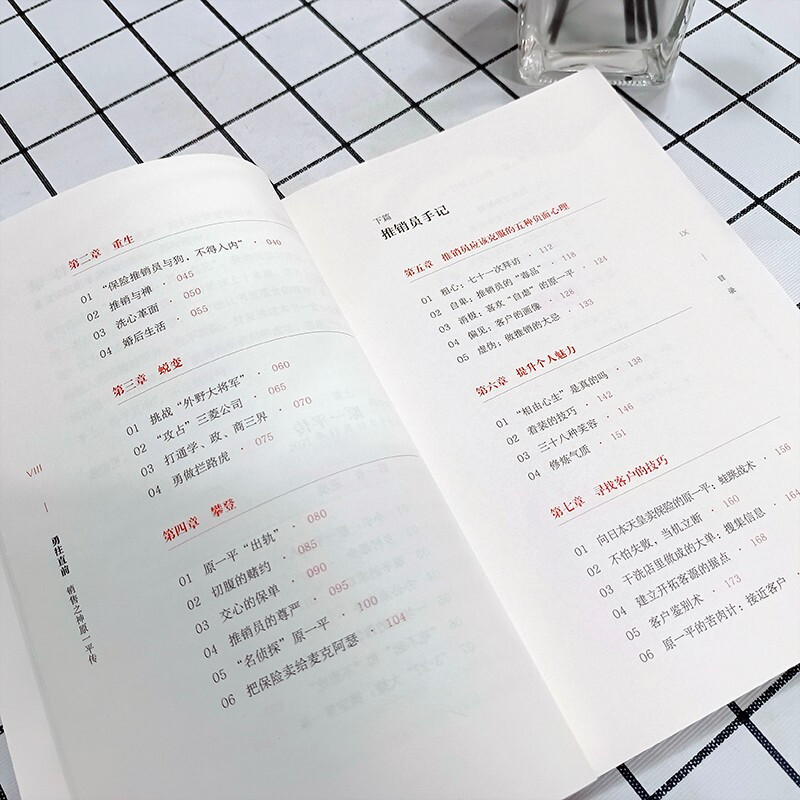 第二章 重生
01 “保险推销员与狗，不得入内” · 040
02 推销与禅 · 045
03 洗心革面 · 050
04 婚后生活 · 055
第三章 蜕变
01 挑战“外野大将军” · 060
02 “攻占”三菱公司 · 065
03 打通学、政、商三界 · 070
04 勇做拦路虎 · 075
第四章 攀登
01 原一平“出轨” · 080
02 切腹的赌约 · 085
03 交心的保单 · 090
04 推销员的尊严 · 095
05 “名侦探”原一平 · 100
06 把保险卖给麦克阿瑟 · 104
VIII
勇往直前 销售之神原一平传
下篇
推销员手记
第五章 推销员应该克服的五种负面心理
01 粗心：七十一次拜访 · 112
02 自卑：推销员的“毒品” · 118
03 消极：喜欢“自虐”的原一平 · 124
04 偏见：客户的画像 · 128
05 虚伪：做推销的大忌 · 133
第六章 提升个人魅力
01 “相由心生”是真的吗 · 138
02 着装的技巧 · 142
03 三十八种笑容 · 146
04 修炼气质 · 151
第七章 寻找客户的技巧
01 向日本天皇卖保险的原一平：蛙跳战术 · 156
02 不怕失败，当机立断 · 160
03 干洗店里做成的大单：搜集信息 · 164
04 建立开拓客源的据点 · 168
05 客户鉴别术 · 173
06 原一平的苦肉计：接近客户 ·
IX
目录